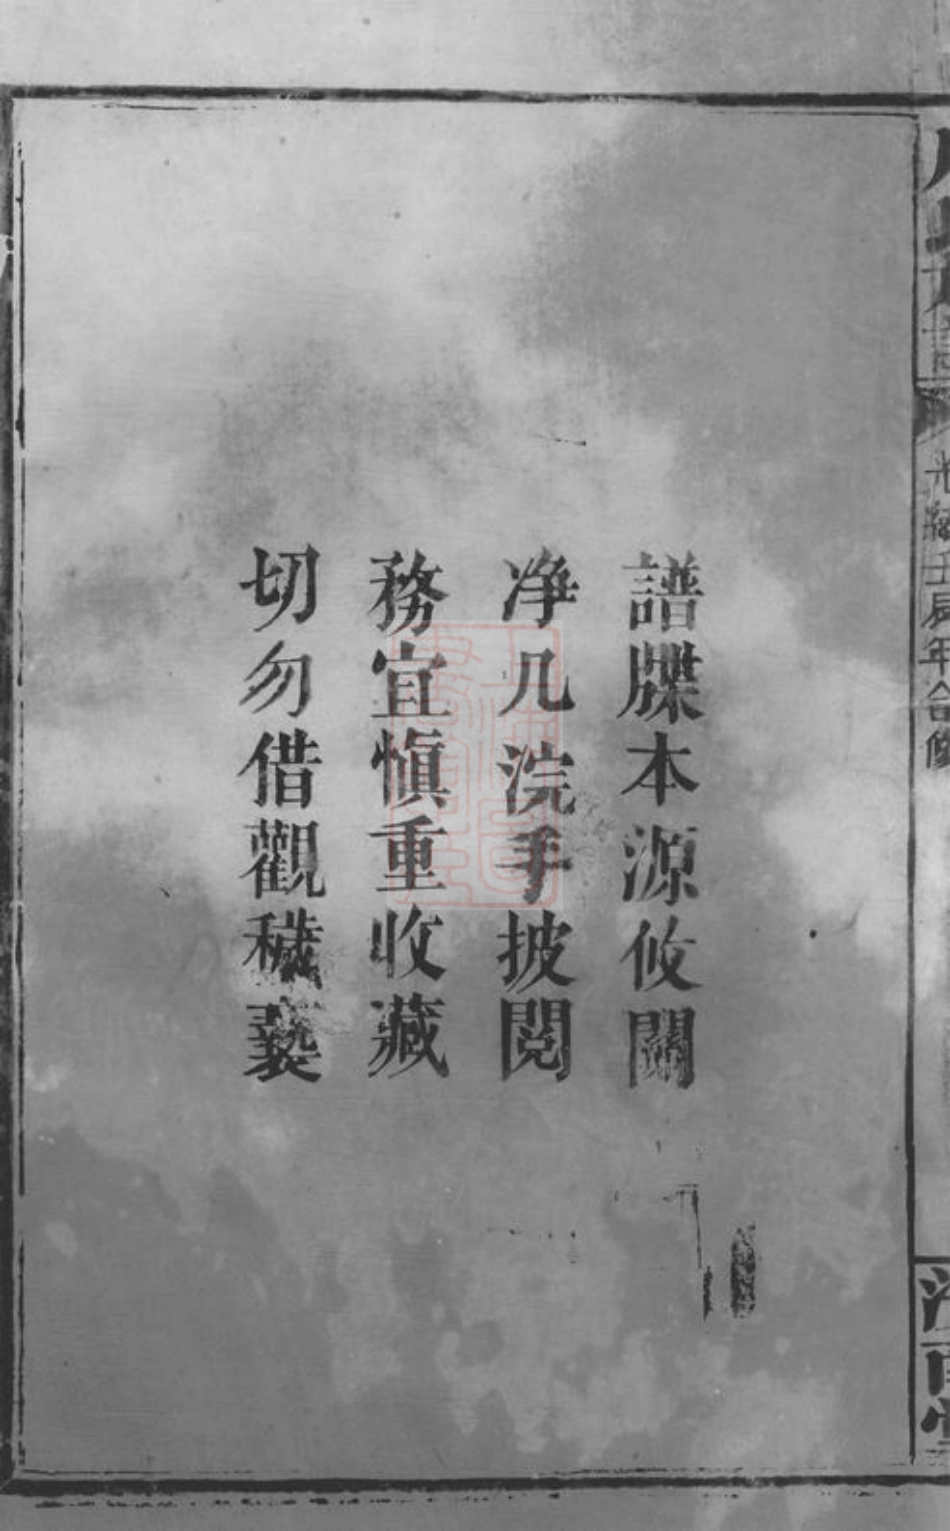 光緒壬辰年合修
譜牒本源攸關
凈几浣手披閱
務宜慎重收藏
切勿借觀穢褻